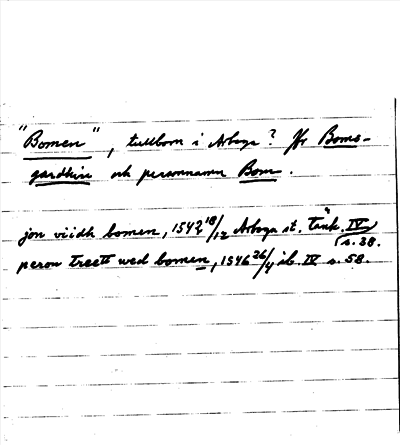 "Bomen", tullbom i Arboga? Jfr Boms-
gardhin och personnamn Bom.
jon viidh bomen, 1542 18/12 Arboga st. tänk. IV
s. 28.
peron treett wed bomen, 1546 26/4 ib. IV s. 58.